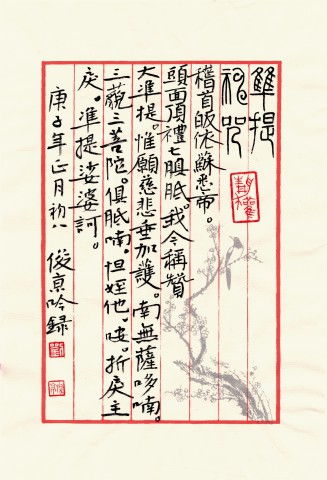 準提
神咒
稽首皈依蘇悉帝。
頭面頂禮七俱胝。我今稱贊
大准提。惟願慈悲垂加護。南無薩哆喃。
三藐三菩陀。俱胝喃。怛姪他。唵。折戾主
戾。准提娑婆訶。
庚子年正月初八 俊京吟録